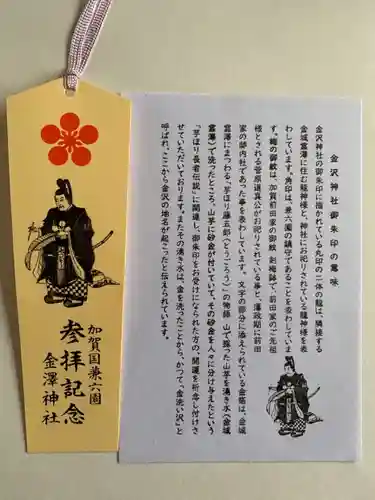 加賀国兼六園
参拝記念
金澤神社
金沢神社御朱印の意味
金沢神社の御朱印に描かれている丸印の二体の龍は、隣接する
金城霊澤に住む龍神様と、神社にお祀りされている龍神様を表
わしています。角印は、兼六園の鎮守であることを表わしていま
す。梅の御紋は、加賀前田家の御紋 剣梅鉢で、前田家のご先祖
様とされる菅原道真公がお祀りされている事と、藩政期に前田
家の邸内社であった事を表わしています。文字の部分に添えられている金箔は、金城
霊澤にまつわる「芋ほり藤五郎(とうごろう)」の物語 山で採った山芋を湧き水(金城
霊澤)で洗ったところ、山芋に砂金が付いていて、その砂金を人々に分け与えたという
「芋ほり長者伝説」に関連し、御朱印をお受けになられた方の、開運を祈念し付けさ
せていただいております。またその湧き水は、金を洗ったことから、かつて、「金洗い沢」と
呼ばれ、ここから金沢の地名が起こったと伝えられています。